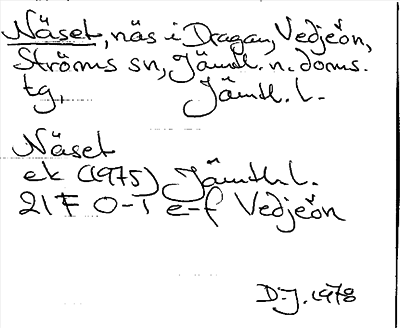 Näset, näs i Dragan, Vedjeön,
Ströms sn, Jämtl. n. doms.
tg, Jämtl. l.
Näset
ek (1975) Jämtl l.
21 F 0-1 e-f Vedjeön
D-J. 1978